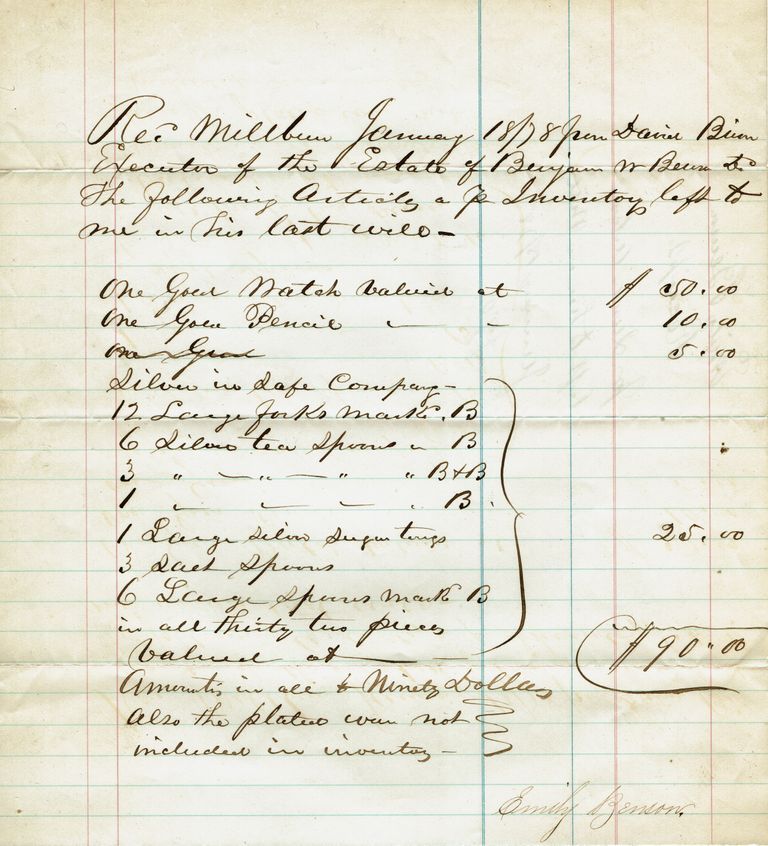 Rec Millburn January 18/78 from David Benson
Executor of the Estate of Benjamin W Benson Dc
The following Articles as pr Inventory left to
me in his last will —
One Gold Watch Valued at $ 50.00
One Gold Pencil — - 10.00
One Gold 5.00
Silver in Safe Company -
12 Large forks markd. B
6 Silver tea spoons " B
3 " — " — " " B & B
1 " " " " B.
1 Large silver sugar tongs 25.00
3 Salt Spoons
6 Large Spoons markd B
in all thirty two pieces
Valued at — $90.00
Amounts in all to Ninety Dollars
Also the plated ware not
included in inventory -
Emily Benson.